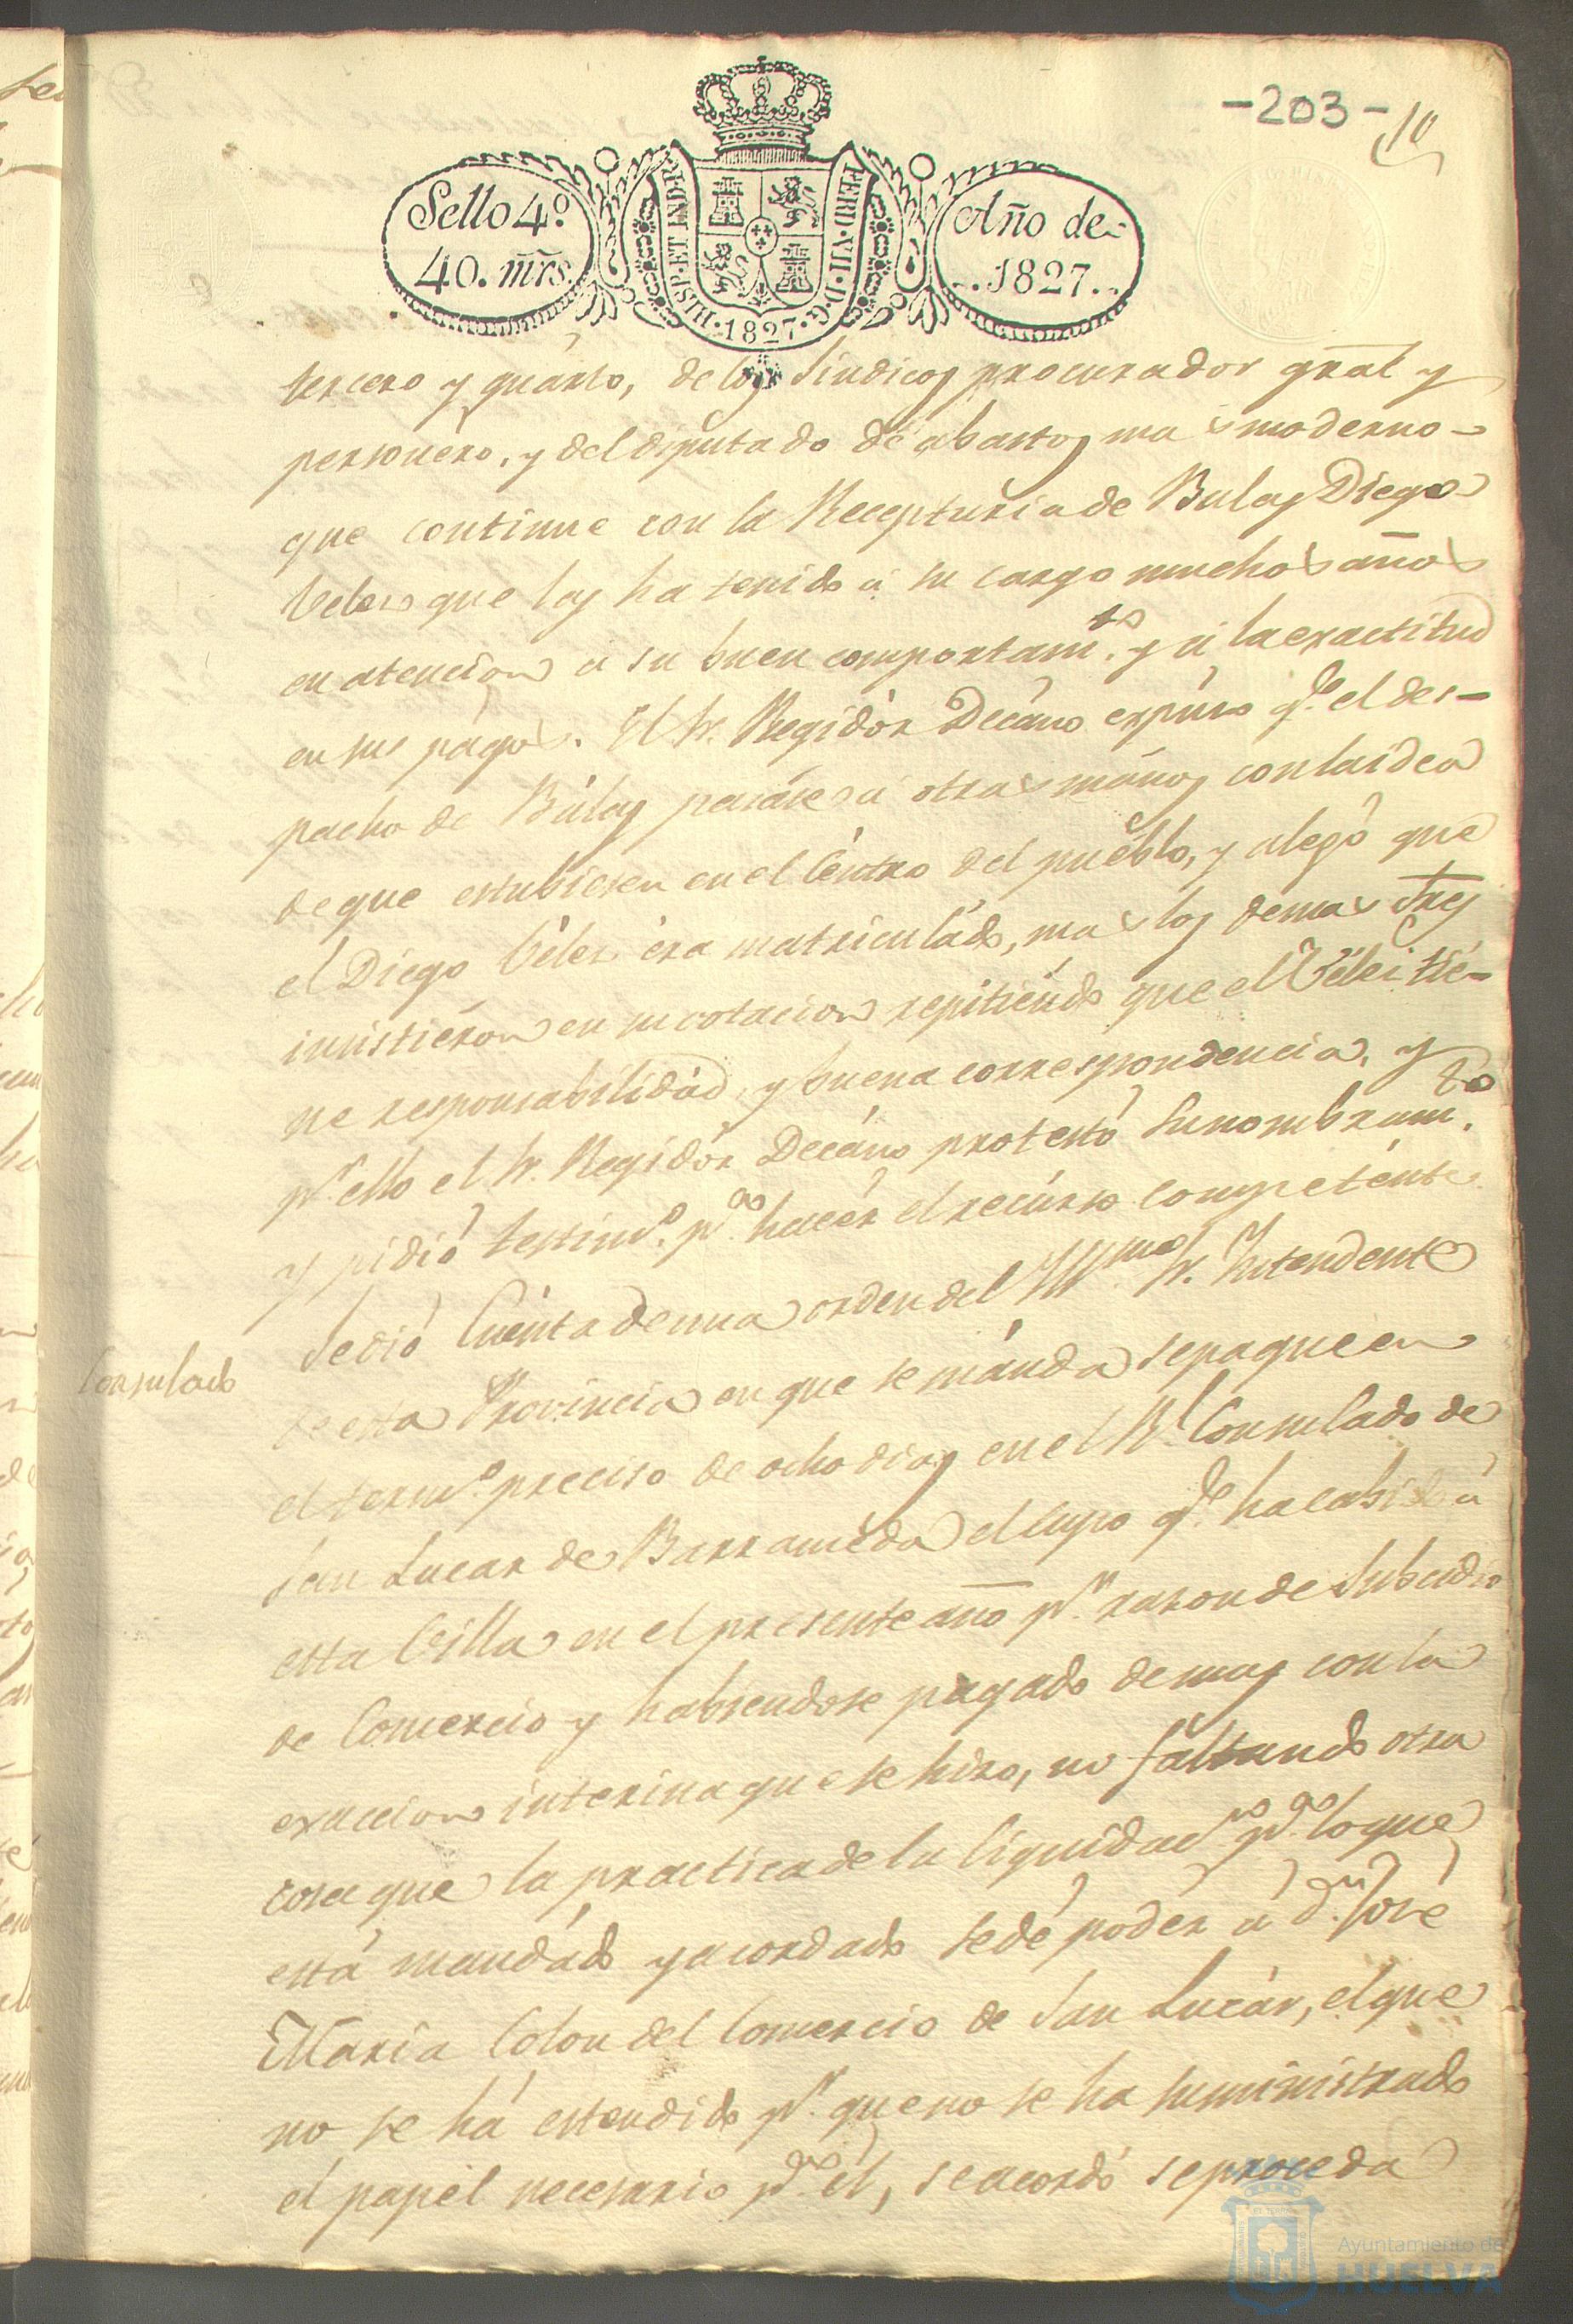 -203-
10
Sello 4º
40. mrs.
HISP. ET IND. R.
FERD. VII. D. G.
1827
Año de
1827
tercero y quárto, de los Sindicos procurador gral y
personero, y del diputado de abastos mas moderno
que continue con la Recepturia de Bulas Diego
Velez que las ha tenido á su cargo muchos años
en atencion a su buen comportamto. y á la exactitud
en sus págos. El Sr. Regidór Decáno expúso qe. el des-
pacho de Búlas pasáse á otras mános con la idea
de que estubiesen en el Céntro del puéblo, y alegó que
el Diego Vélez éra matriculádo, mas los demas Sres
insistiéron en su votacion repitiéndo que el Vélez tié-
ne responsabilidád, y buena correspondencia, y
pr. ello el Sr. Regidór Decáno protestó su nombramto.
y pidió testimo. pa. hacér el recúrso competénte.
Consulado
Se dió Cuénta de una orden del Yllmo. Sr. Intendente
de esta Provincia en que se mánda se pague en
el termo. preciso de ocho dias en el Rl. Consulado de
San Lucar de Barraméda el cupo qe. ha cabido á
esta Villa en el presente año pr. razon de Subsidio
de Comercio y habiendose pagado demas con la
exaccion interina que se hizo, no faltando otra
cosa que la practica de la liquidacn. pa. lo que
está mandádo y acordado se dé podér á dn. José
María Colon del Comercio de San Lucár, el que
no se há estendido pr. que no se ha suministrado
el papél necesario pa. él, se acordó se proceda
Ayuntamiento de
HUELVA